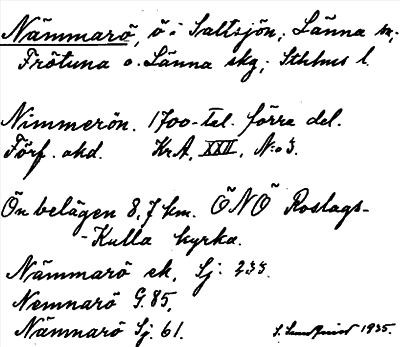 Nämmarö, ö i Saltsjön, Länna sn,
Frötuna o. Länna skg, Sthlms l.
Nimmerön. 1700-tal. förra del.
Förf. okd. Kr.A, XXII, No 3.
Ön belägen 8,7 km. ÖNÖ Roslags-
-Kulla kyrka.
Nämmarö ek, Sj. 233.
Nemnarö G. 85,
Nämnarö Sj. 61. 1935.